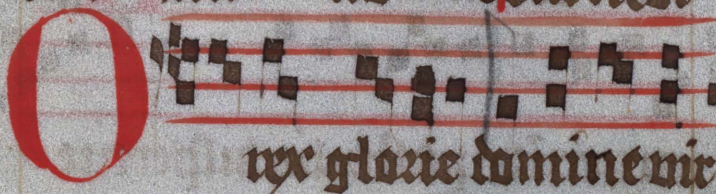 O rex glorie domine vir